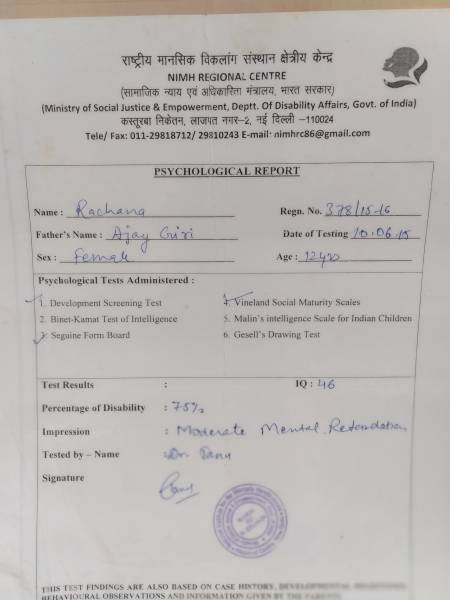 राष्ट्रीय मानसिक विकलांग संस्थान क्षेत्रीय केन्द्र
NIMH REGIONAL CENTRE
(सामाजिक न्याय एवं अधिकारिता मंत्रालय, भारत सरकार)
(Ministry of Social Justice & Empowerment, Deptt. Of Disability Affairs, Govt. of India)
कस्तूरबा निकेतन, लाजपत नगर-2, नई दिल्ली -110024
Tele/ Fax: 011-29818712/ 29810243 E-mail: nimhrc86@gmail.com
PSYCHOLOGICAL REPORT
Name : Rachana Regn. No. 378/15-16
Father's Name : Ajay Giri Date of Testing 10.06.15
Sex : Female Age : 12
Psychological Tests Administered :
1. Development Screening Test 4. Vineland Social Maturity Scales
2. Binet-Kamat Test of Intelligence 5. Malin's intelligence Scale for Indian Children
3. Seguine Form Board 6. Gesell's Drawing Test
Test Results : IQ : 46
Percentage of Disability : 75%
Impression : Moderate Mental Retardation
Tested by – Name : Dr.
Signature
THIS TEST FINDINGS ARE ALSO BASED ON CASE HISTORY,
BEHAVIOURAL OBSERVATIONS AND INFORMATION GIVEN BY THE